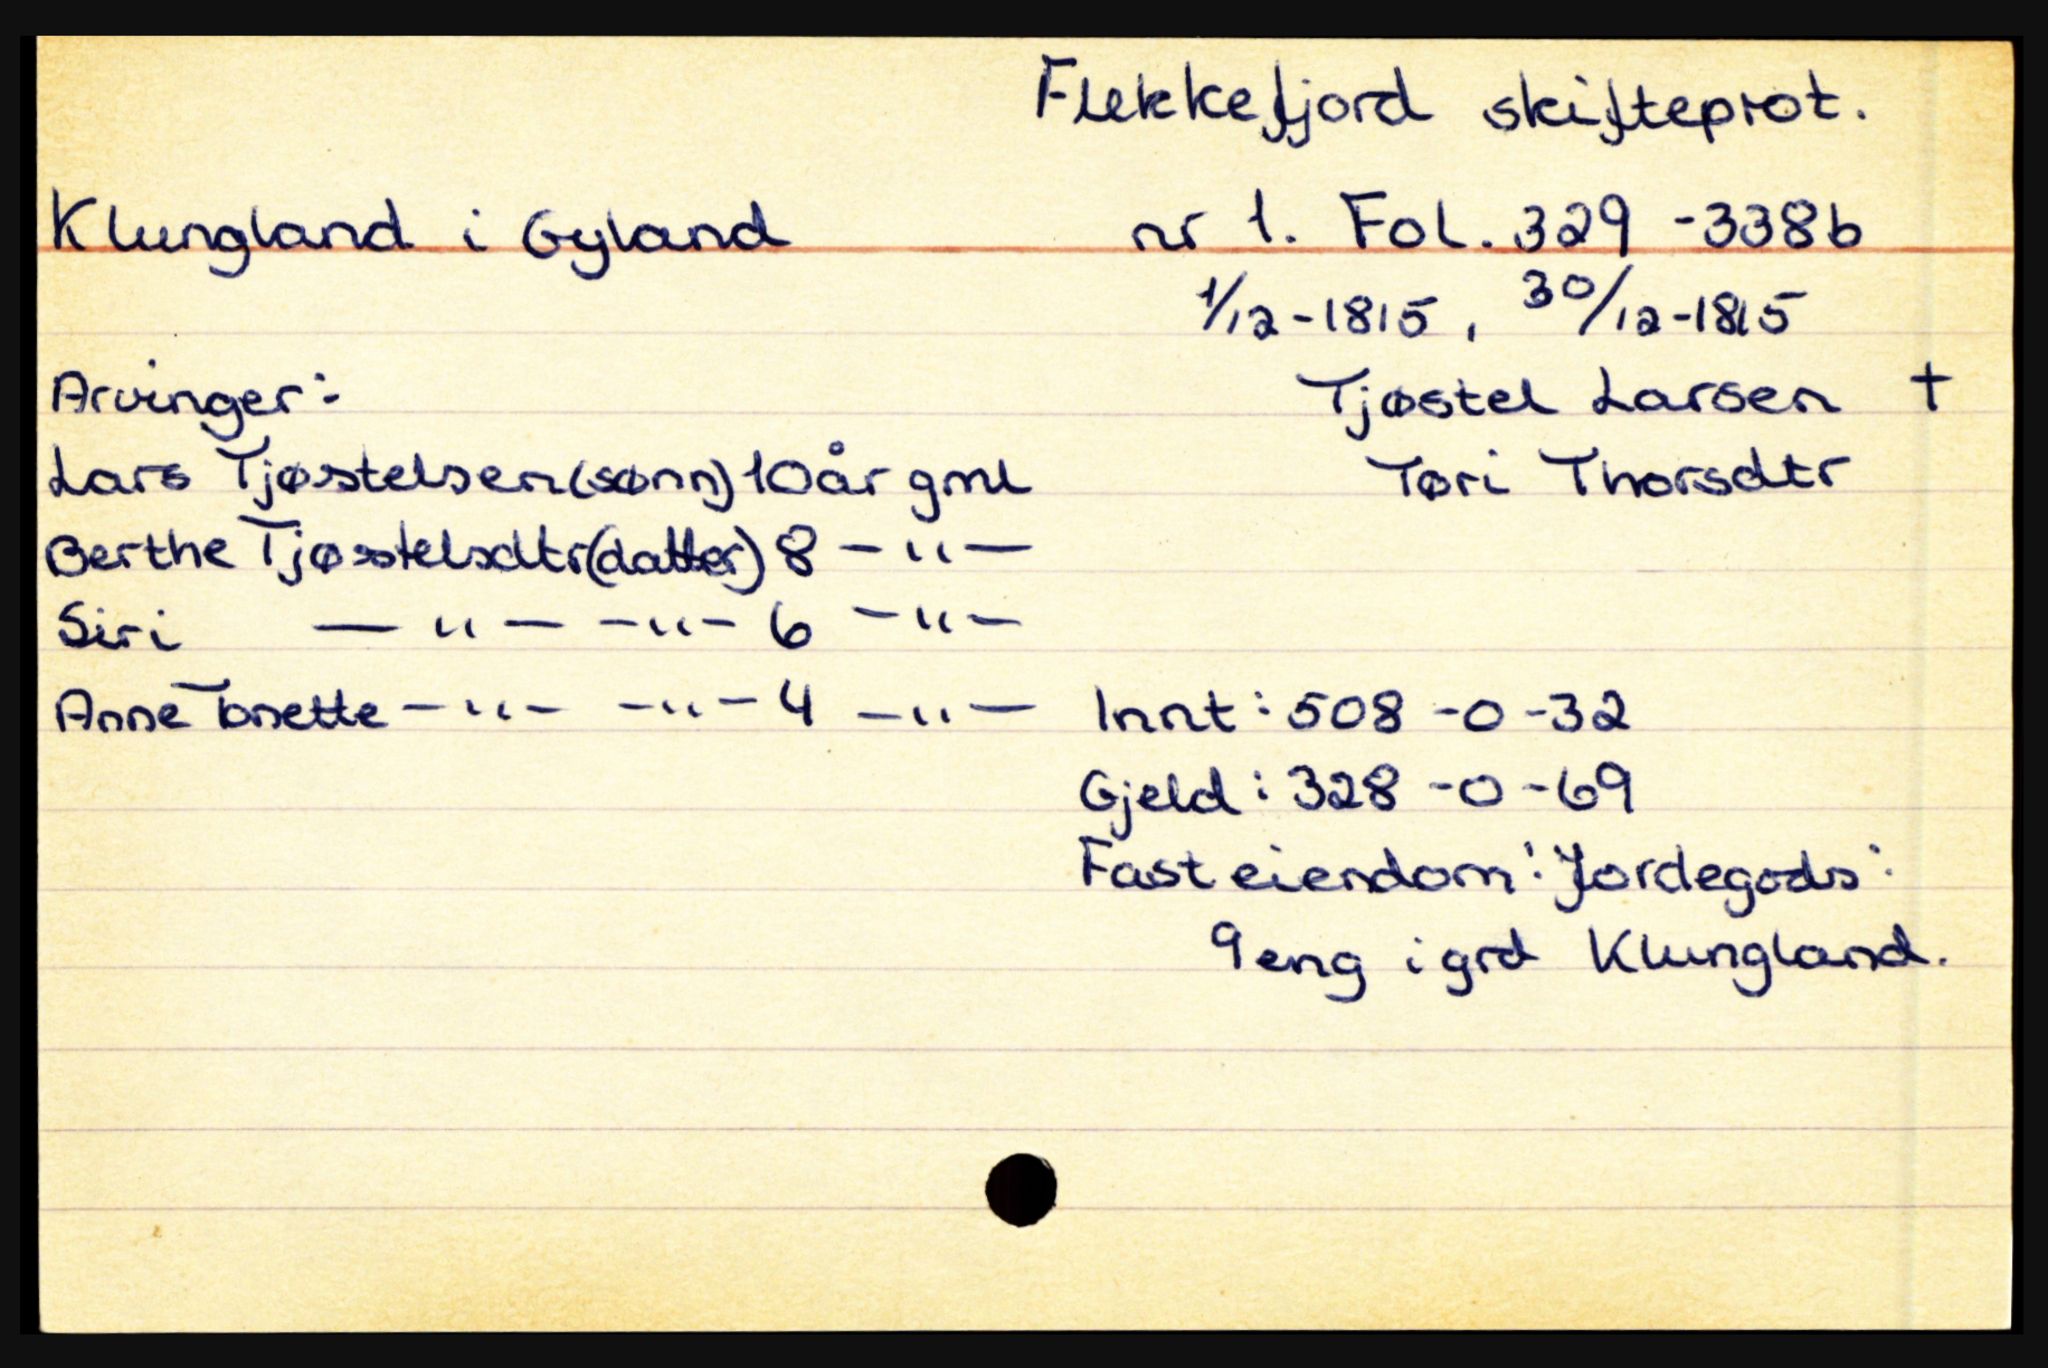 Flekkefjord skifteprot.
Klungland i Gyland nr 1. Fol. 329 - 338b
1/12 - 1815, 30/12 - 1815
Arvinger: Tjøstel Larsen +
Lars Tjøstelsen (sønn) 10 år gml Tøri Thorsdtr
Berthe Tjøstelsdtr (datter) 8 — " —
Siri — " — — " — 6 — " —
Anne Tonette — " — — " — 4 — " — Innt: 508 - 0 - 32
Gjeld: 328 - 0 - 69
Fast eiendom: Jordegods:
9 eng i grd Klungland.